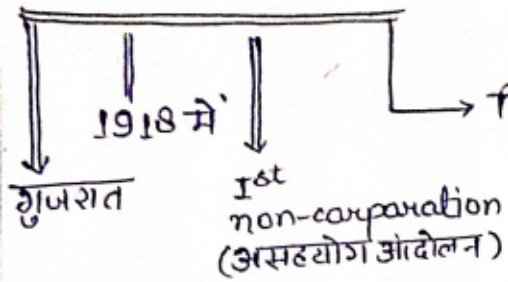 1918 में
गुजरात
Ist
non-carparation
(असहयोग आंदोलन)